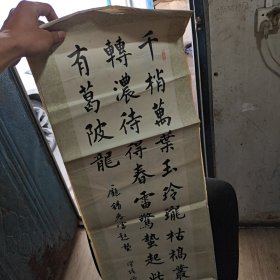 千梢萬葉玉玲瓏枯槁叢
轉濃待得春雷驚蟄起此
有葛陂龍